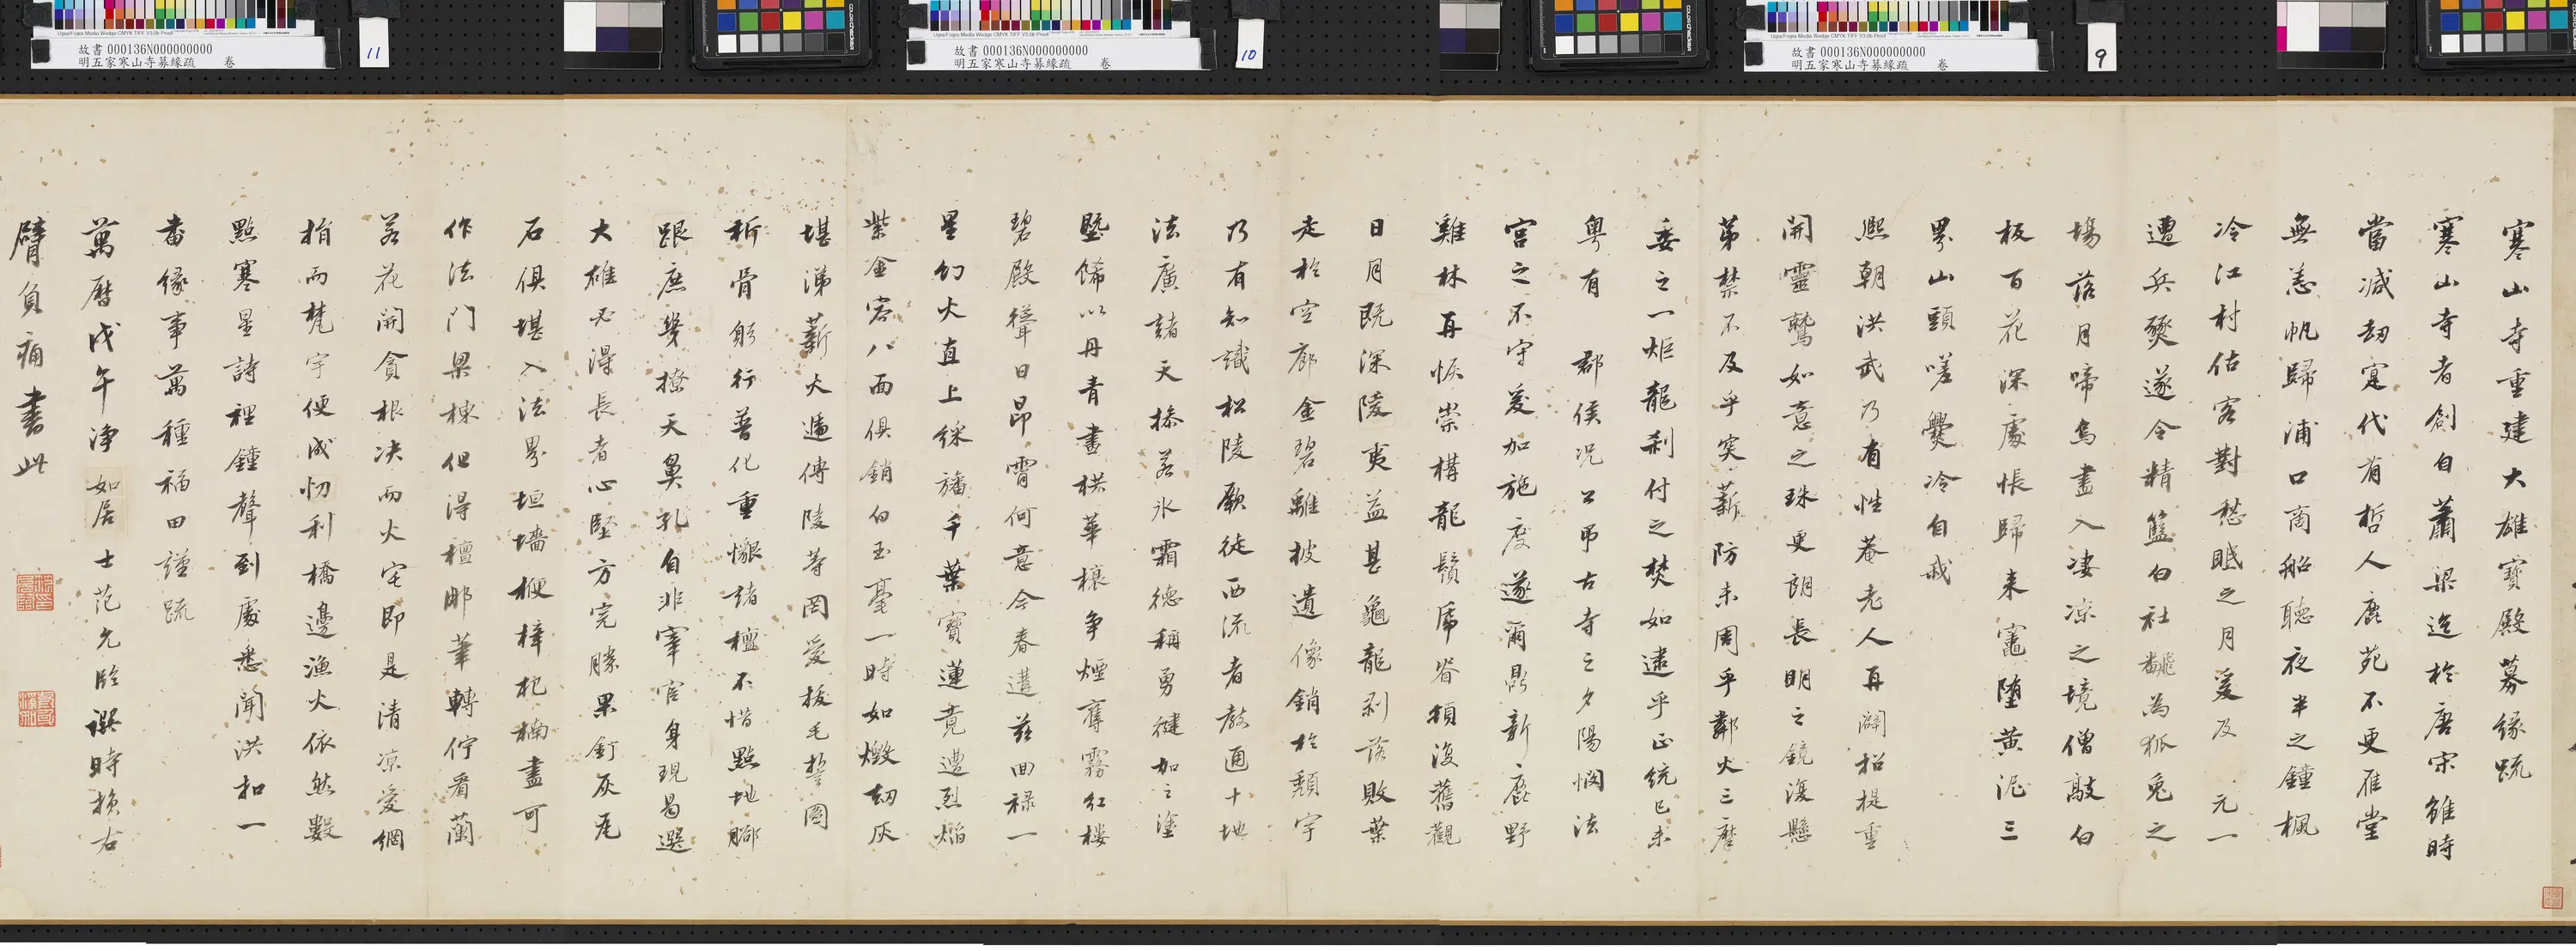 寒山寺重建大雄寶殿募緣疏
寒山寺者創自蕭梁迄於唐宋雖時
當減劫寔代有哲人鹿苑不更雁堂
無恙帆歸浦口商船聽夜半之鐘楓
冷江村估客對愁眠之月爰及 元一
遭兵燹遂令精籃白社翻為狐兔之
場落月啼烏盡入淒涼之境僧敲白
板百花深處悵歸來竈墮黃泥三
界山頭嗟爨冷自我
熙朝洪武乃有性菴老人再闢招提重
開靈鷲如意之珠更朗長明之鏡復懸
第禁不及乎突薪防未周乎鄰火三摩
委之一炬龍剎付之焚如逮乎正統己未
粵有 郡侯況公弔古寺之夕陽憫法
宮之不守爰加施度遂爾鼎新鹿野
雞林再恢崇構龍鬚虎脊頓復舊觀
日月既深陵夷益甚龜龍剝落敗葉
走於空廊金碧離披遺像銷於頹宇
乃有知識松陵願徒西流者教通十地
法廣諸天操若氷霜德稱勇健加之塗
墍餙以丹青畫栱華榱爭煙奪霧紅樓
碧殿聳日昂霄何意今春遘茲回祿一
星幻火直上綵旛千葉寶蓮竟遭烈焰
紫金容八面俱銷白玉毫一時如燬劫灰
堪涕薪火遞傳陵等罔愛拔毛誓圖
析骨躬行普化重懺諸檀不惜點地腳
跟庶幾撩天鼻孔自非宰官身現曷選
大雄必得長者心堅方完勝果釘灰瓦
石俱堪入法界垣墻梗梓杞楠盡可
作法門梁棟但得檀郍筆轉佇看蘭
若花開貪根決而火宅即是清涼愛網
捐而梵宇便成忉利橋邊漁火依然數
點寒星詩裡鐘聲到處悉聞洪扣一
番緣事萬種福田謹疏
萬曆戊午淨如居士范允臨譔時損右
臂負痛書此
故書 000136N000000000
明五家寒山寺募緣疏 卷
11
故書 000136N000000000
明五家寒山寺募緣疏 卷
10
故書 000136N000000000
明五家寒山寺募緣疏 卷
9